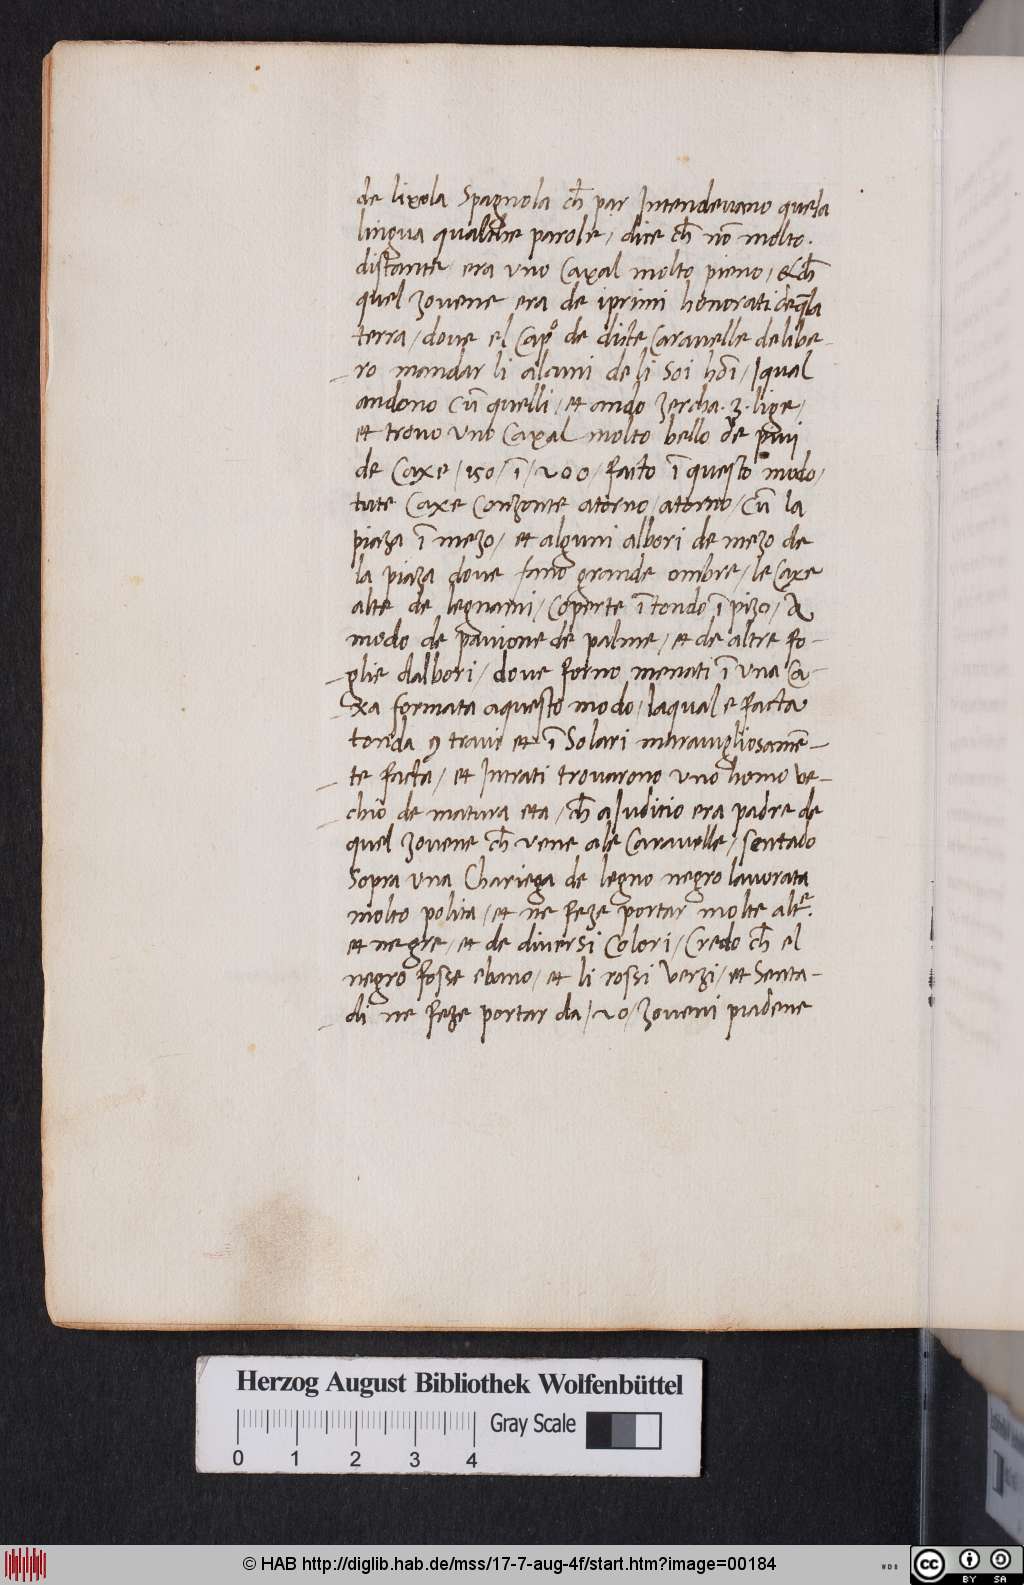 de lixola Spagnola ch̄ par Intendeuano quela
lingua qualche parole / dice ch̄ nō molto.
distante era vno Caxal molto pieno / & ch̄
quel zouene era de i primi honorati de q̄la
terra / doue el Capº de dicte Carauelle delibe-
ro mandar li alcuni de li Soi hoī / I qual
andono cū quelli / et ando zercha .3. lige /
et trouo vno Caxal molto bello de piui
de Caxe / 150 / ī / 200 / facto ī questo modo /
tute Caxe Conzonte atorno / atorno / cū la
piaza ī mezo / et alguni albori de mezo de
la piaza doue fano grande ombre / le Caxe
alte de legnami / Coperte ī tondo ī pizo / A
modo de pauione de palme / et de altre fo-
glie dalbori / doue forno menati ī vna ca-
xa formata aquesto modo / laqual e facta
tonda 9 traui et ī Solari marauigliosamē-
te facta / et Intrati trouarono vno homo ve-
chio de matura eta / ch̄ a Iudicio era padre de
quel zouene ch̄ vene a le Carauelle / sentado
Sopra vna Chariega de legno negro lauorata
molto polita / et ne feze portar molte altre.
et negre / et de diuersi Colori / Credo ch̄ el
negro fosse ebano / et li rossi Verzi / et Senta-
di ne feze portar da / 20 / zoueni piadene
Herzog August Bibliothek Wolfenbüttel
Gray Scale
0 1 2 3 4
© HAB http://diglib.hab.de/mss/17-7-aug-4f/start.htm?image=00184
WDB
cc BY SA